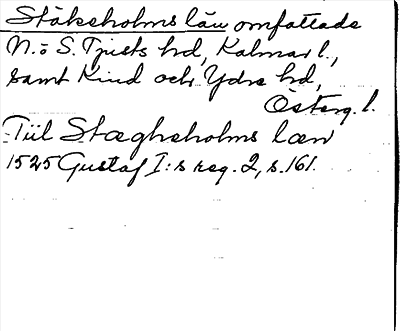 Stäkeholms län omfattade
N. o S. Tjusts hd, Kalmar l.,
samt Kind och Ydre hd,
Österg. l.
Till Stægheholms læn
1525 Gustaf I:s reg. 2, s. 161.